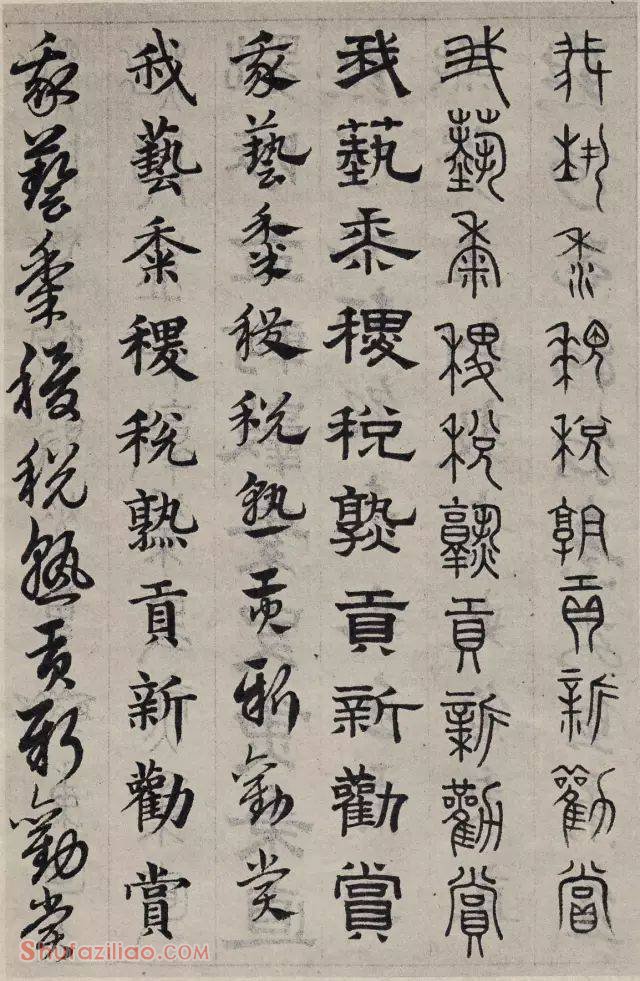 我藝黍稷稅熟貢新勸賞
我藝黍稷稅熟貢新勸賞
我藝黍稷稅熟貢新勸賞
我藝黍稷稅熟貢新勸賞
我藝黍稷稅熟貢新勸賞
我藝黍稷稅熟貢新勸賞
Shufaziliao.com